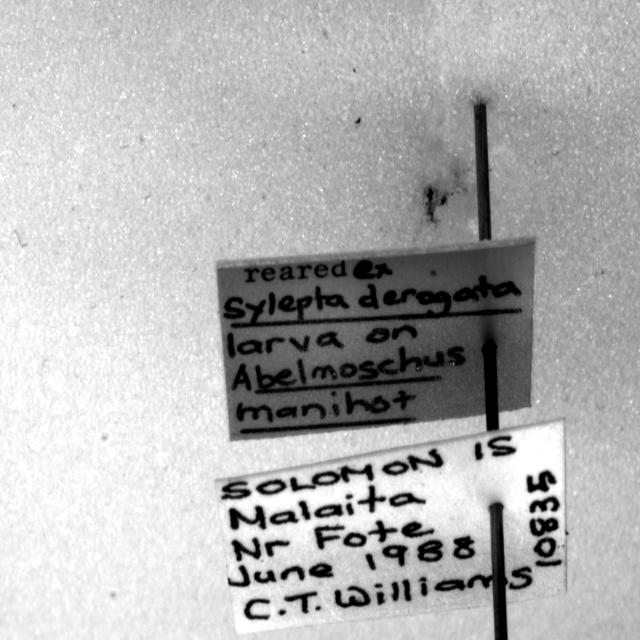 reared ex
Sylepta derogata
larva on
Abelmoschus
manihot
SOLOMON IS
Malaita
Nr Fote
June 1988
C.T. Williams
10835